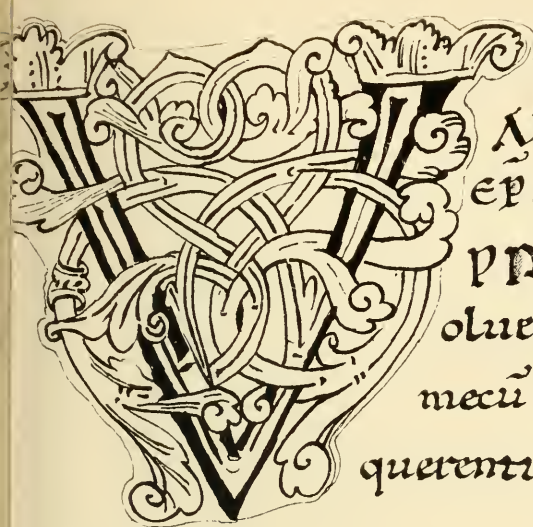 V
EP̄
PR
olue
mecū
querentı